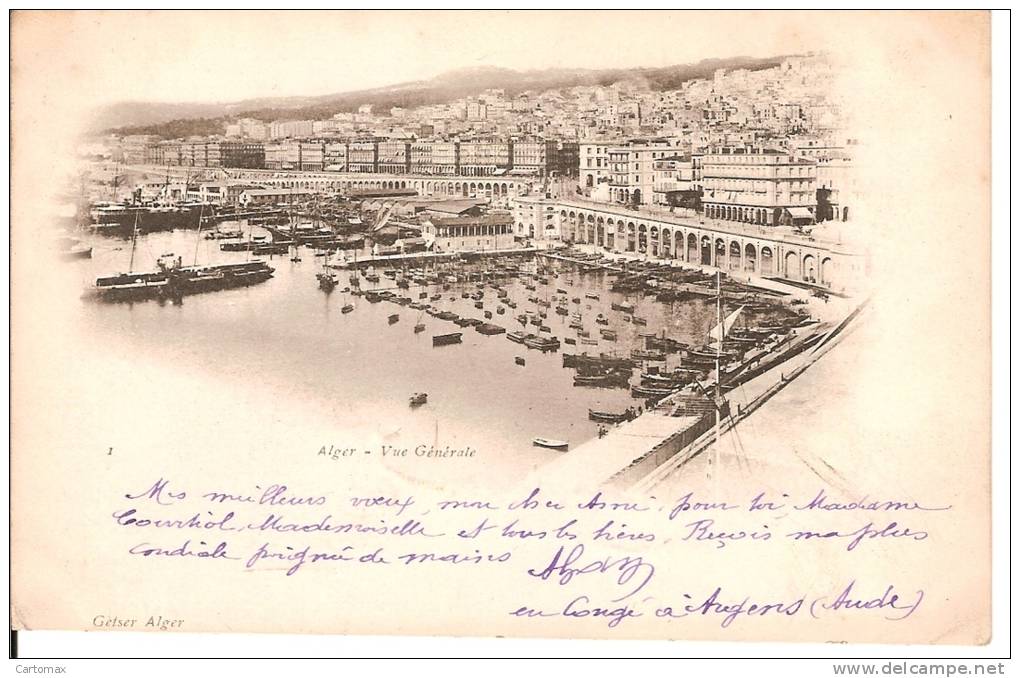 1
Alger - Vue Générale
Mes meilleurs vœux, mon cher Ami, pour toi, Madame
Courtiol, Mademoiselle et tous les tiens. Reçois ma plus
cordiale poignée de mains
en Congé à (Aude)
Geiser Alger
Cartomax
www.delcampe.net